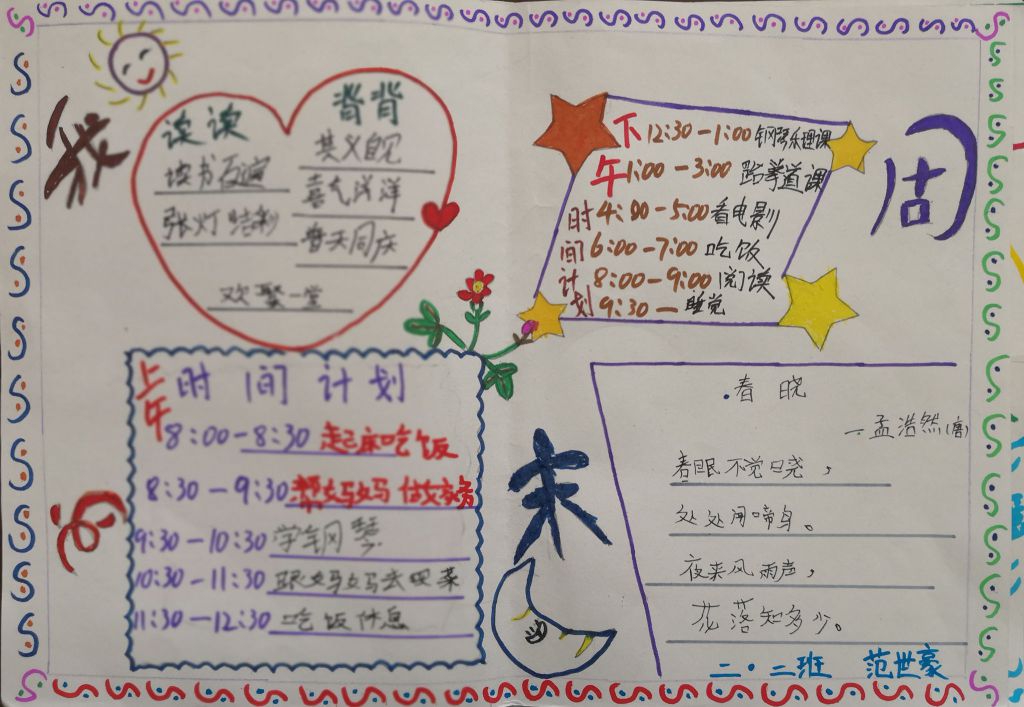 我
的
周
末
读读
背背
读书
张灯结彩
欢聚一堂
喜气洋洋
普天同庆
下午
时间计划
12:30-1:00钢琴乐理课
1:00-3:00跆拳道课
4:00-5:00看电影
6:00-7:00吃饭
8:00-9:00阅读
9:30-睡觉
上午
时间计划
8:00-8:30起床吃饭
8:30-9:30帮妈妈做家务
9:30-10:30学钢琴
10:30-11:30跟妈妈去买菜
11:30-12:30吃饭休息
.春晓
-孟浩然(唐)
春眠不觉晓,
处处闻啼鸟。
夜来风雨声,
花落知多少。
二.二班 范世豪